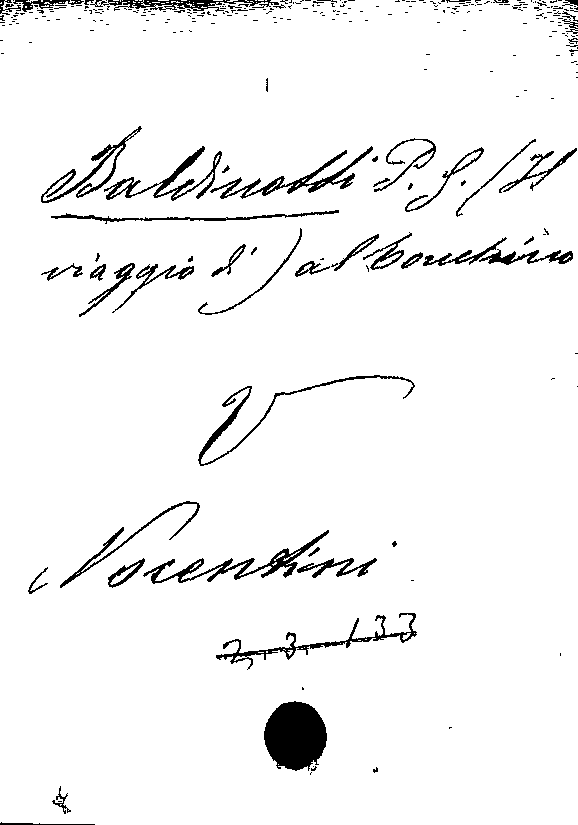 Baldinotti P. G. (Il
viaggio di) al Tonchino
V
Nocentini
2. 3. 133